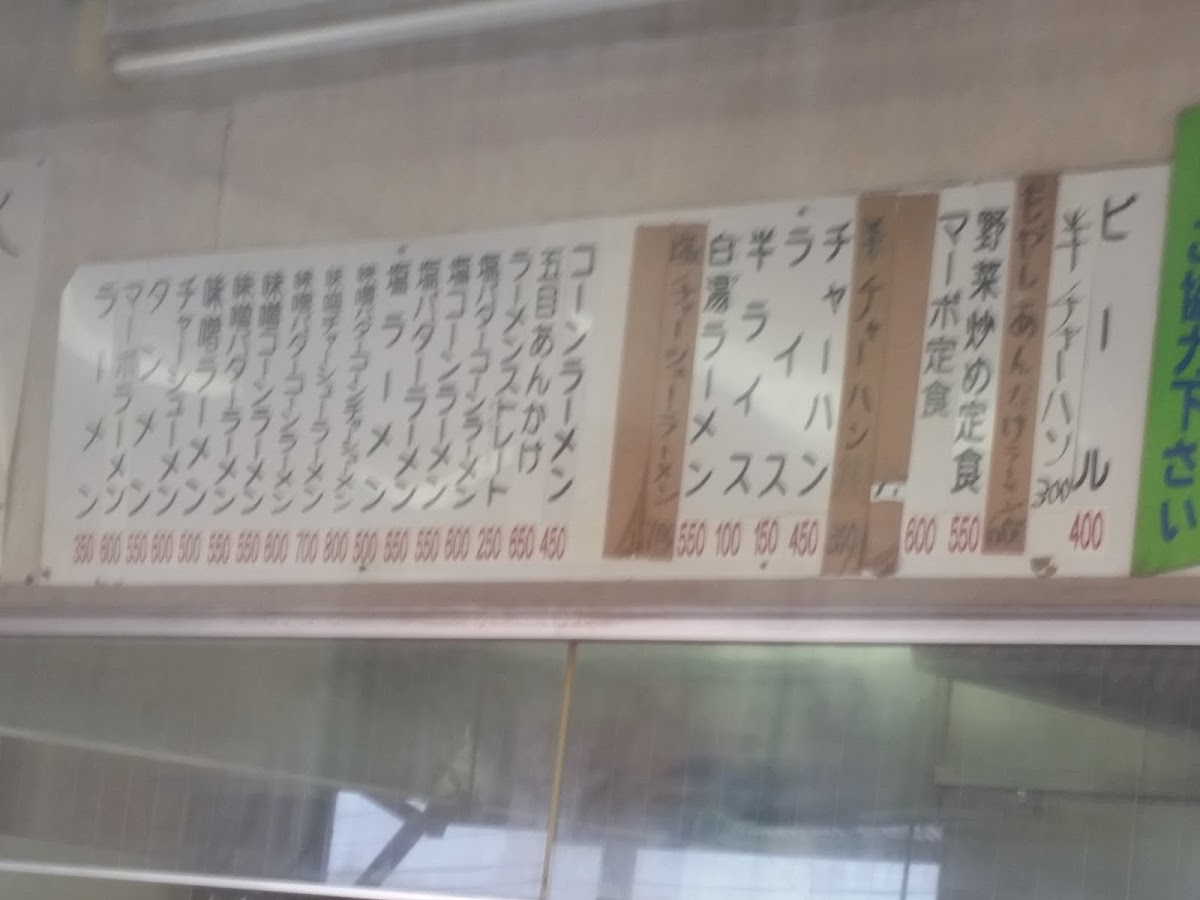 ご協力下さい
ビール 400
半チャーハン 300
モヤしあんかけラーメン
野菜炒め定食 550
マーボ定食 600
半チャーハン
チャーハン 450
ライス 150
半ライス 100
白湯ラーメン 550
塩チャーシューラーメン
コーンラーメン 450
五目あんかけ 650
ラーメンストレート 250
塩バターコーンラーメン 600
塩コーンラーメン 550
塩バターラーメン 550
塩ラーメン 500
味噌バターコーンチャーシューメン 800
味噌チャーシューラーメン 700
味噌バターコーンラーメン 600
味噌コーンラーメン 550
味噌バターラーメン 550
味噌ラーメン 500
チャーシューメン 600
タンメン 550
マーボラーメン 600
ラーメン 350